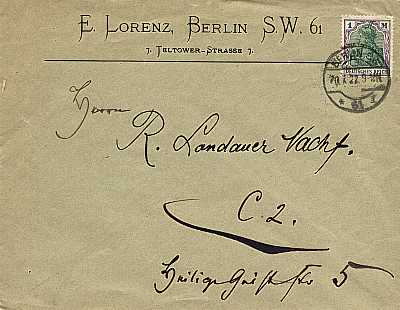 E. LORENZ, BERLIN S.W. 61
7. TELTOWER-STRASSE 7.
1 M
DEUTSCHES REICH
BERLIN
61
Herrn
R. Landauer Nachf.
C. 2.
Heilige Geist Str 5